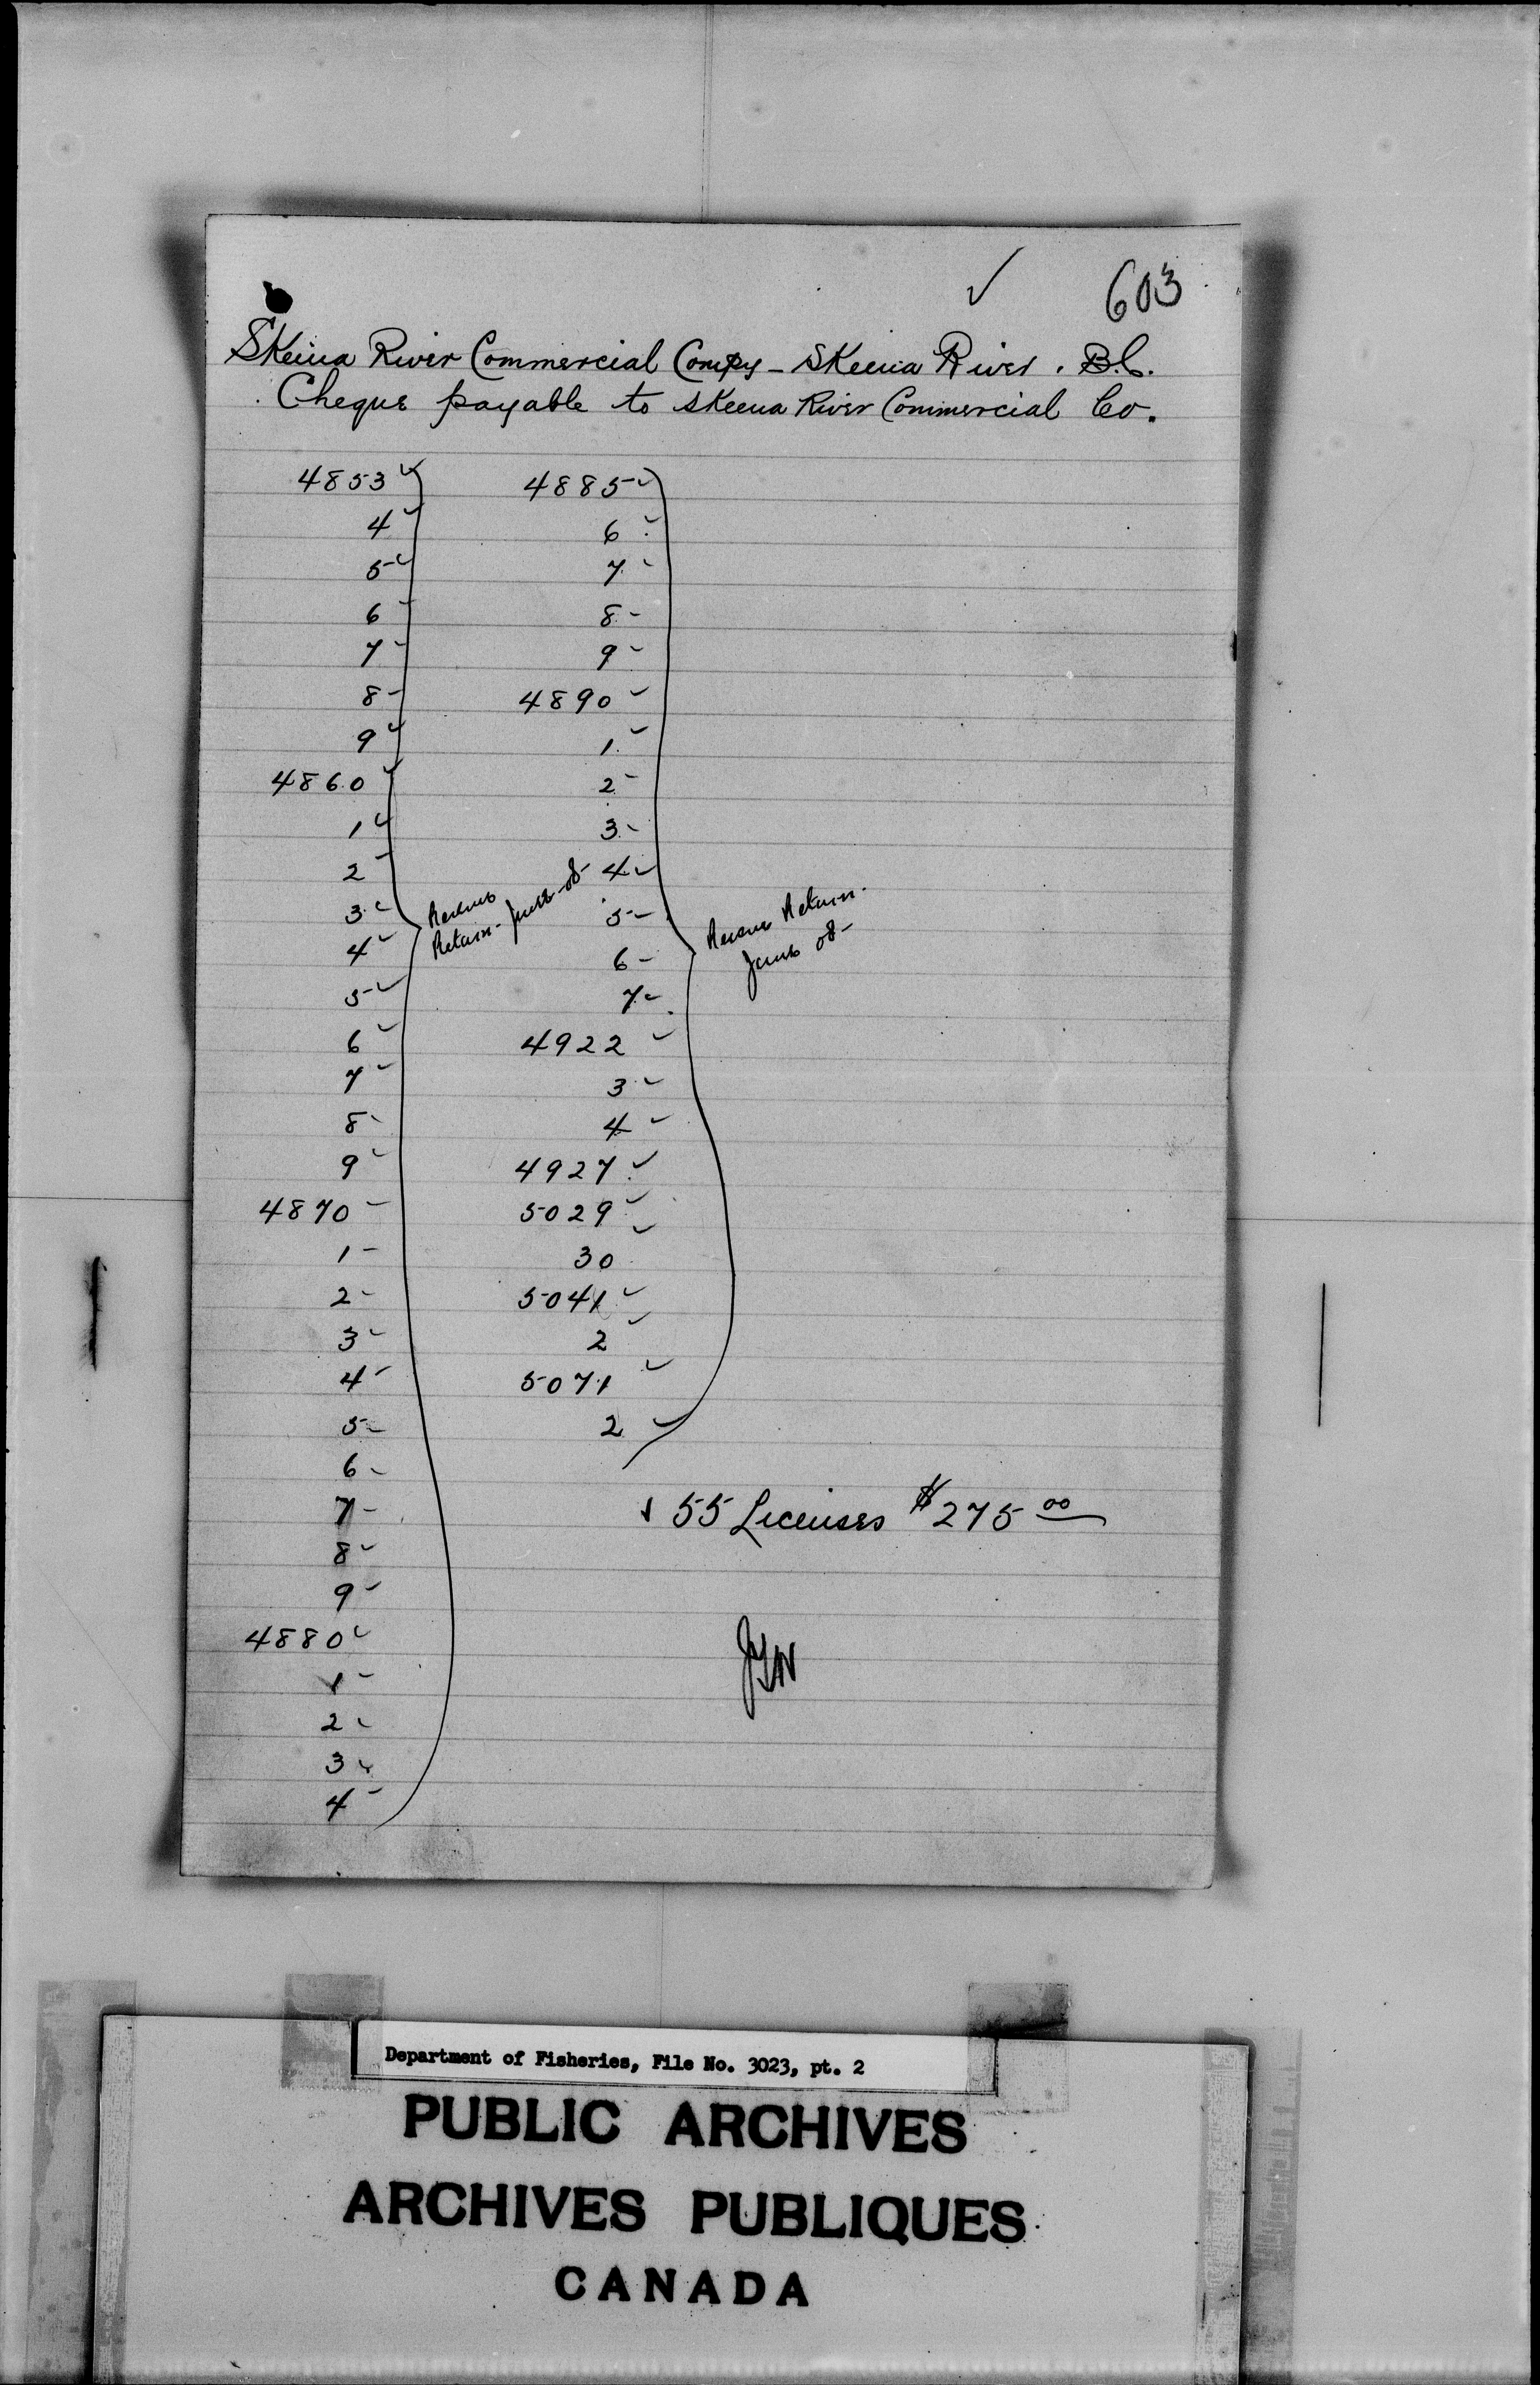 ✓ 603
Skeena River Commercial Compy - Skeena River. B.C.
Cheque payable to Skeena River Commercial Co.
4853 ✓
4 ✓
5 ✓
6 ✓
7 ✓
8 ✓
9 ✓
4860 ✓
1 ✓
2 ✓
3 ✓
4 ✓
5 ✓
6 ✓
7 ✓
8 ✓
9 ✓
4870 ✓
1 ✓
2 ✓
3 ✓
4 ✓
5 ✓
6 ✓
7 ✓
8 ✓
9 ✓
4880 ✓
1 ✓
2 ✓
3 ✓
4 ✓
Return - June -08-
4885 ✓
6 ✓
7 ✓
8 ✓
9 ✓
4890 ✓
1 ✓
2 ✓
3 ✓
4 ✓
5 ✓
6 ✓
7 ✓
4922 ✓
3 ✓
4 ✓
4927 ✓
5029 ✓
30 ✓
5041 ✓
2 ✓
5071 ✓
2 ✓
Return.
June 08-
55 Licenses $275 00
Department of Fisheries, File No. 3023, pt. 2
PUBLIC ARCHIVES
ARCHIVES PUBLIQUES
CANADA